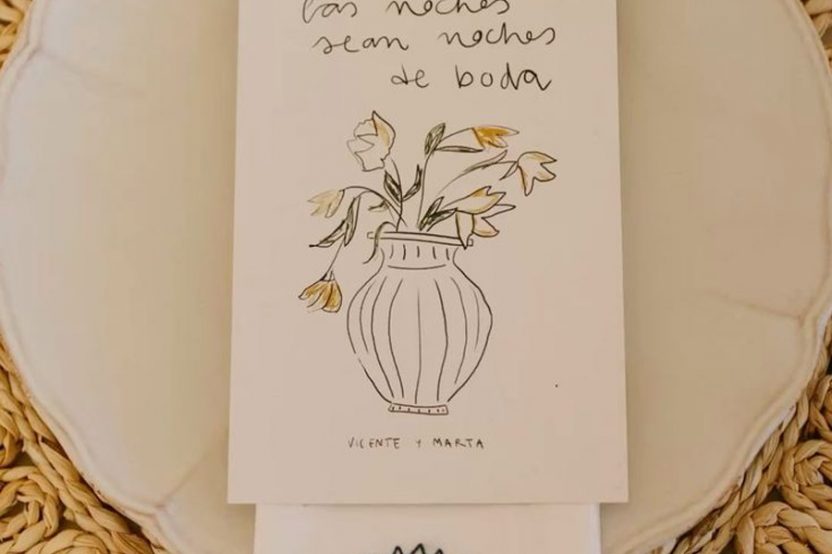 las noches
sean noches
de boda
VICENTE Y MARTA